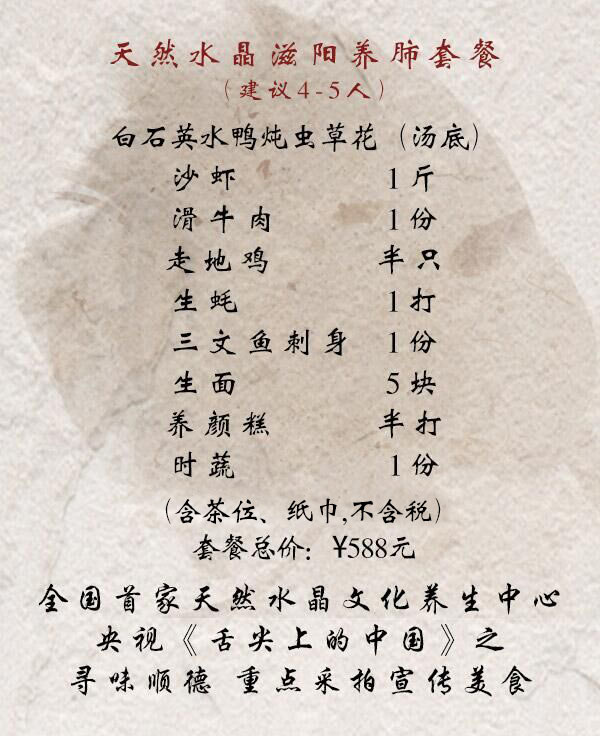 天然水晶滋阳养肺套餐
（建议4-5人）
白石英水鸭炖虫草花（汤底）
沙虾 1斤
滑牛肉 1份
走地鸡 半只
生蚝 1打
三文鱼刺身 1份
生面 5块
养颜糕 半打
时蔬 1份
（含茶位、纸巾,不含税）
套餐总价：¥588元
全国首家天然水晶文化养生中心
央视《舌尖上的中国》之
寻味顺德 重点采拍宣传美食